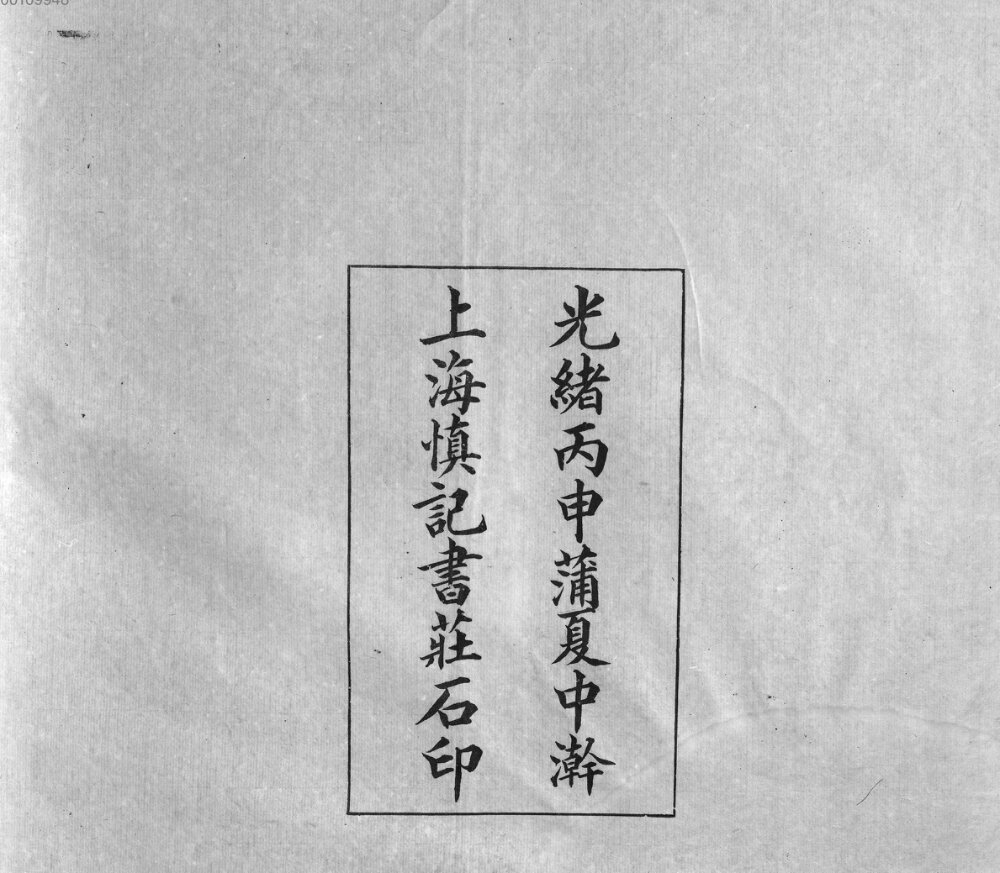 光緒丙申蒲夏中澣
上海慎記書莊石印